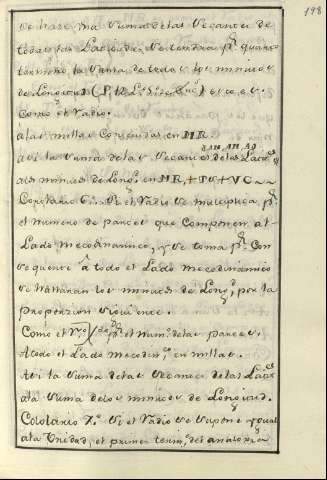 198
se hase una suma de las secantes de
todas las Latitudes, se tendra pr quarto
termino la suma de todos los minutos
de Longitud
Como el Radio.
a las millas Corridas en MR
asi la suma de las secantes de las Latds
a los minutos de Longd en MR, + TV + VC
Corolario 6o Si el Radio se multiplica pr
el numero de partes que Componen al
Lado mecodinamico, y se toma pr Con
sequente a todo el Lado mecodinamico
se hallaran los minutos de Longd por la
proporsion siguiente.
Como el Ro pr el numo de las partes.
A todo el Lado mecodino en millas.
Asi la suma de las secantes de las Latds
a la suma de los minutos de Longitud.
Cololario 7o Si el Radio se supone ygual
a la Unidad, el primer termo del analogia